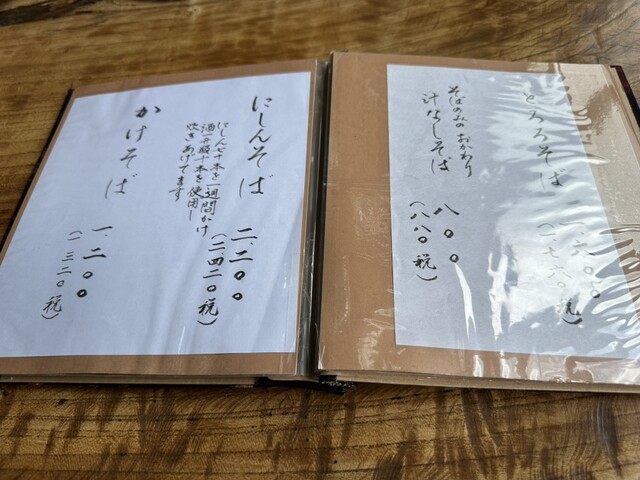 とろろそば 一、六〇〇
(一、七六〇税)
そばのみの おかわり
汁なしそば 八〇〇
(八八〇税)
にしんそば 二、二〇〇
(二、四二〇税)
にしん七十本を一週間かけ
酒一升瓶十本を使用し
炊きあげてます
かけそば 一、二〇〇
(一、三二〇税)